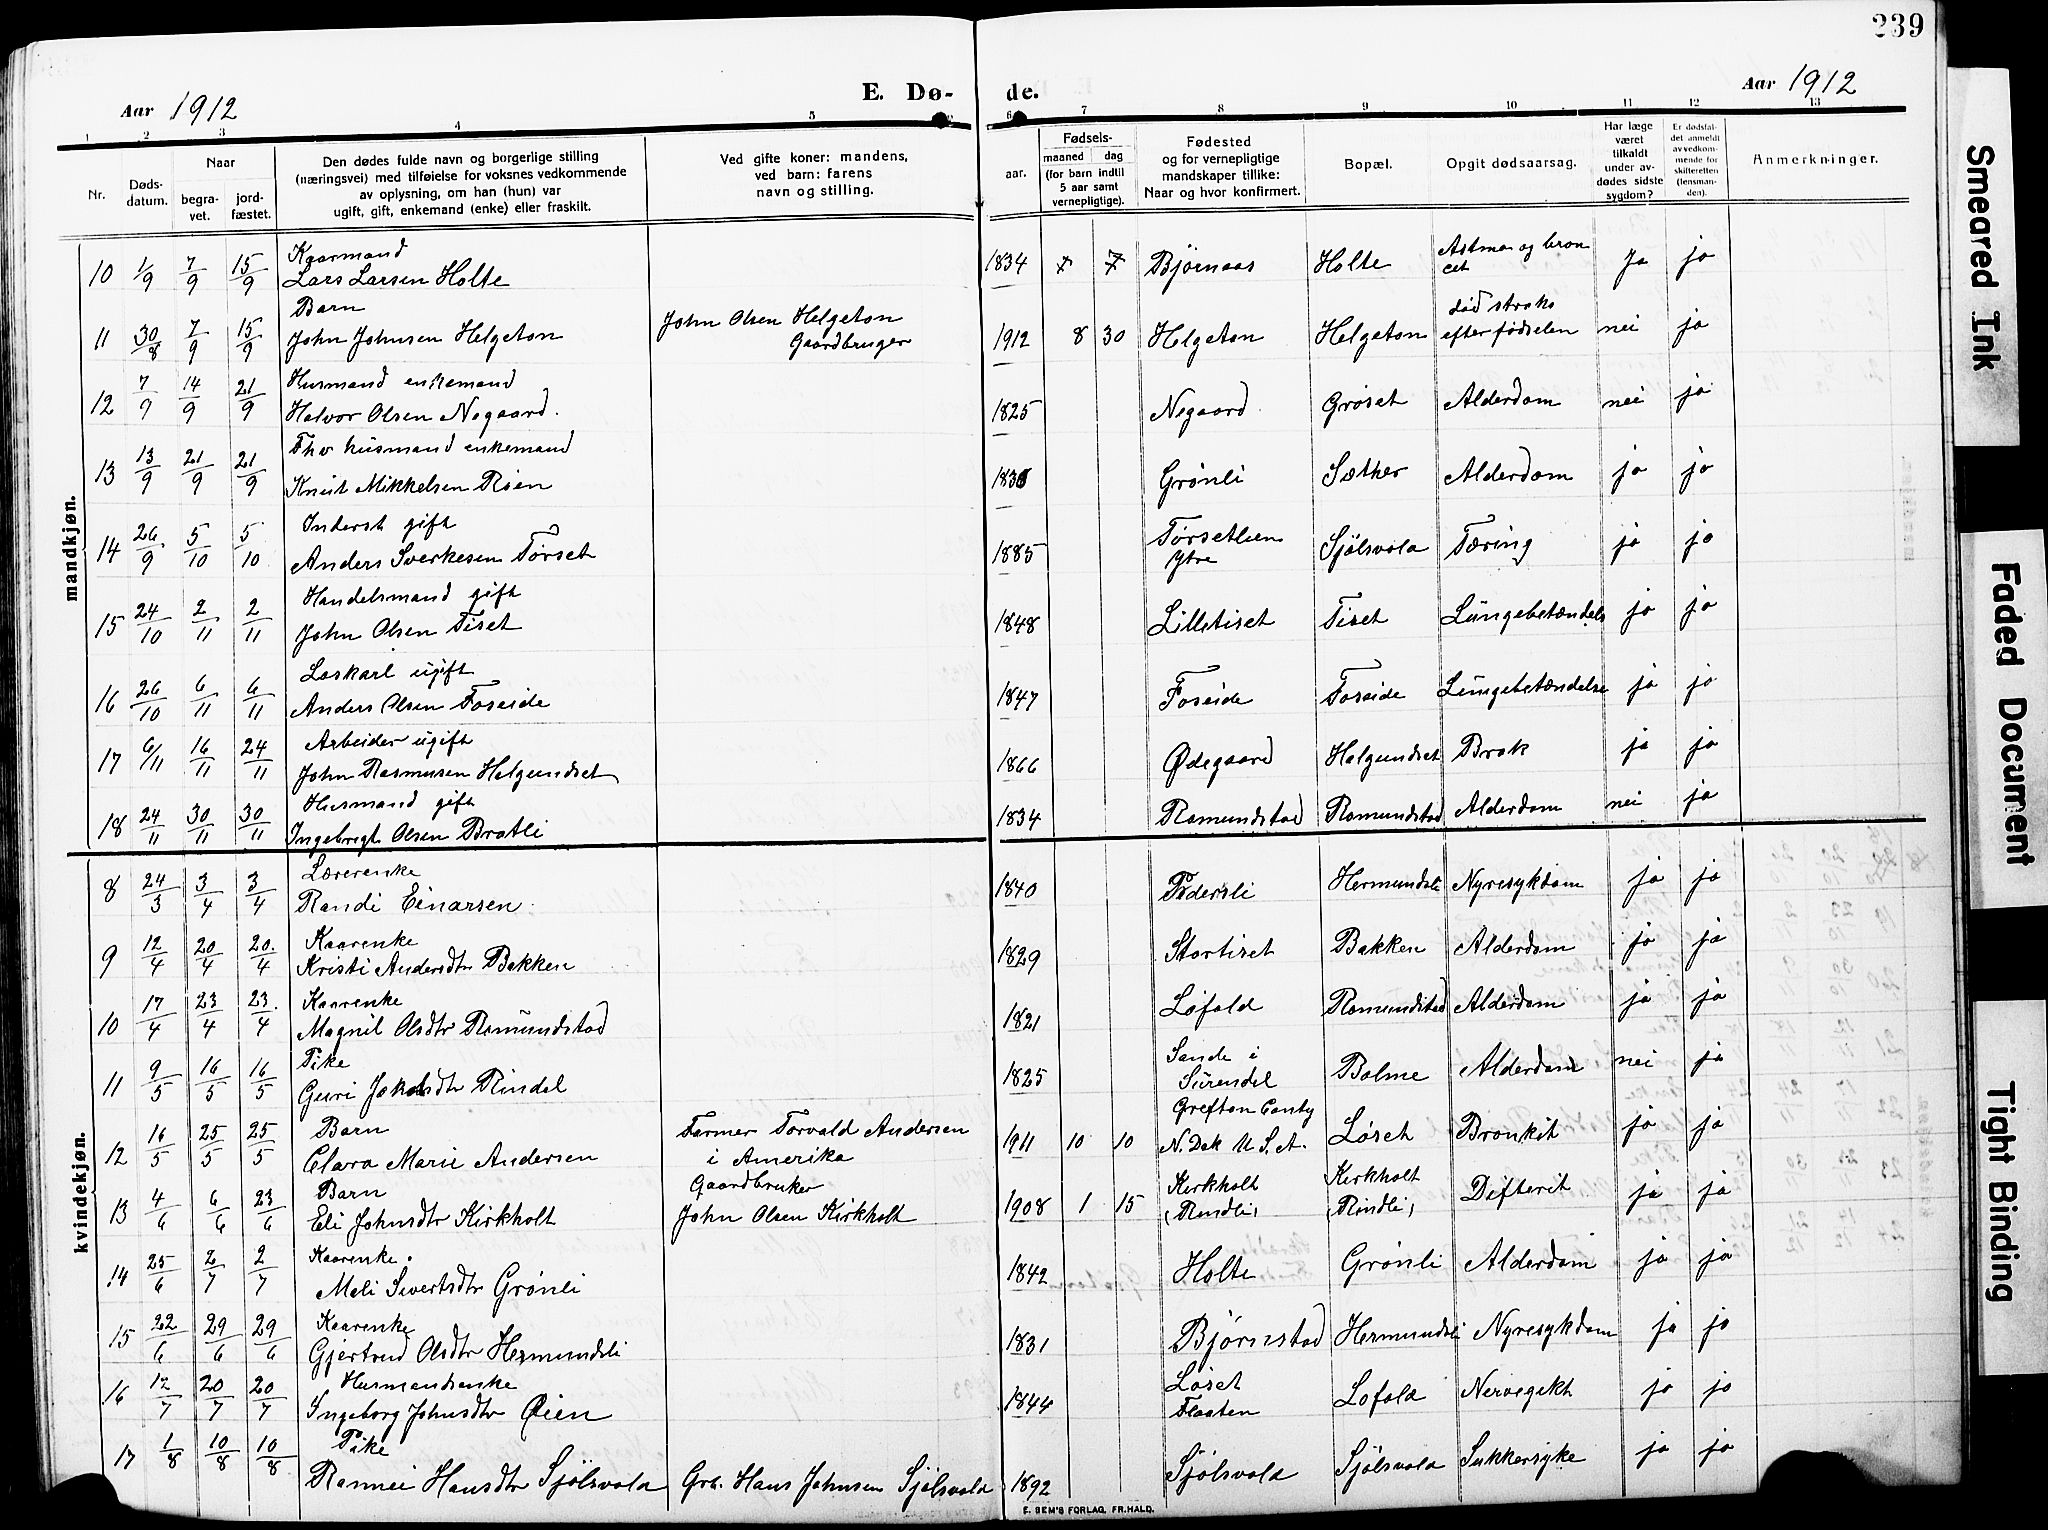 239
Aar 1912
E. Dø-
de.
Aar 1912
1 2 3 4 5 6 7 8 9 10 11 12 13
Nr.
Døds-
datum.
Naar
begra-
vet.
jord-
fæstet.
Den dødes fulde navn og borgerlige stilling
(næringsvei) med tilføielse for voksnes vedkommende
av oplysning, om han (hun) var
ugift, gift, enkemand (enke) eller fraskilt.
Ved gifte koner: mandens,
ved barn: farens
navn og stilling.
aar.
Fødsels-
maaned dag
(for barn indtil
5 aar samt
vernepligtige).
Fødested
og for vernepligtige
mandskaper tillike:
Naar og hvor konfirmert.
Bopæl.
Opgit dødsaarsag.
Har læge
været
tilkaldt
under av-
dødes sidste
sygdom?
Er dødsfal-
det anmeldt
av vedkom-
mende for
skifteretten
(lensman-
den).
Anmerkninger.
mandkjøn.
10 1/9 7/9 15/9 Kaarmand
Lars Larsen Holte 1834 Bjørnaas Holte Astma og bron
cet Ja ja
11 30/8 7/9 15/9 Barn
John Johnsen Helgeton John Olsen Helgeton
Gaardbruger 1912 8 30 Helgeton Helgeton død straks
efter fødselen nei ja
12 7/9 14/9 21/9 Husmand enkemand
Halvor Olsen Negaard. 1825 Negaard Grøset Alderdom nei ja
13 13/9 21/9 21/9 Fhv husmand enkemand
Knut Mikkelsen Røen Grønli Sæther Alderdom ja ja
14 26/9 5/10 5/10 Inderst gift
Anders Sverkesen Tørset 1885 Tørsetlien
Ytre Sjølsvold Tæring ja ja
15 24/10 2/11 2/11 Handelsmand gift
John Olsen Tiset 1848 Lilletiset Tiset Lungebetændels ja ja
16 26/10 6/11 6/11 Løskarl ugift
Anders Olsen Foseide 1847 Foseide Foseide Lungebetændelse ja ja
17 6/11 16/11 24/11 Arbeider ugift
John Rasmusen Helgundset 1866 Ødegaard Helgundset Brok ja ja
18 24/11 30/11 30/11 Husmand gift
Ingebrigt Olsen Bratli 1834 Romundstad Romundstad Alderdom nei ja
kvindekjøn.
8 24/3 3/4 3/4 Lærerenke
Randi Einarsen 1840 Pedersli Hermundsli Nyresykdom ja ja
9 12/4 20/4 20/4 Kaarenke
Kristi Andersdtr Bakken 1829 Stortiset Bakken Alderdom ja ja
10 17/4 23/4 23/4 Kaarenke
Magnil Olsdtr Romundstad 1821 Løfald Romundstad Alderdom ja ja
11 9/5 16/5 16/5 Pike
Guri Jakobsdtr Rindal 1825 Sande i
Surendal Bolme Alderdom nei ja
12 16/5 25/5 25/5 Barn
Clara Marie Andersen Farmer Torvald Andersen
i Amerika 1911 10 10 Grefton Conty
N. Dak U. S. A. Løset Bronkit ja ja
13 4/6 6/6 23/6 Barn
Eli Johnsdtr Kirkholt Gaardbruker
John Olsen Kirkholt 1908 1 15 Kirkholt
(Rindli) Kirkholt
(Rindli) Difterit ja ja
14 25/6 2/7 2/7 Kaarenke
Meli Sivertsdtr Grønli 1842 Holte Grønli Alderdom ja ja
15 22/6 29/6 29/6 Kaarenke
Gjertrud Olsdtr Hermundsli 1831 Bjørnstad Hermundsli Nyresykdom ja ja
16 12/7 20/7 20/7 Husmandsenke
Ingeborg Johnsdtr Øien 1844 Løset
Flaaten Løfald Nervegikt ja ja
17 1/8 10/8 10/8 Pike
Rannei Hansdtr Sjølsvold Grb. Hans Johnsen Sjølsvold 1892 Sjølsvold Sjølsvold Sukkersyke ja ja
E. SEM'S FORLAG, FR.HALD.
Smeared Ink
Faded Document
Tight Binding